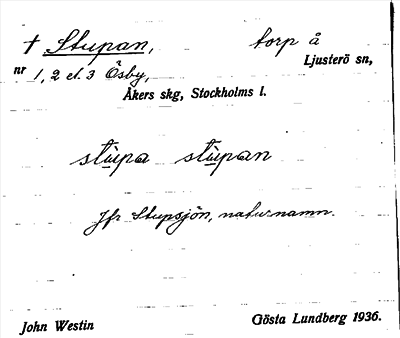 † Stupan, torp å
Ljusterö sn,
nr 1, 2 el. 3 Ösby,
Åkers skg, Stockholms l.
stùpa stùpan
Jfr Stupsjön, naturnamn.
John Westin Gösta Lundberg 1936.